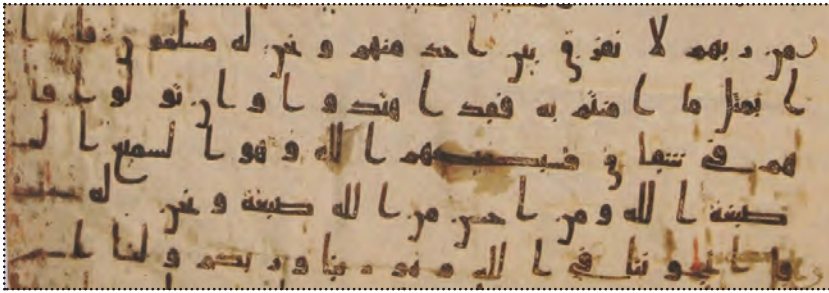 من ربهم لا نفرق بين احد منهم ونحن له مسلمون فان
ا بمثل ما امنتم به فقد اهتدوا وان تولوا فا
هم في شقاق فسيكفيكهم الله وهو السميع ا
صبغة الله ومن احسن من الله صبغة ونحن له
قل اتحاجوننا في الله وهو ربنا وربكم ولنا